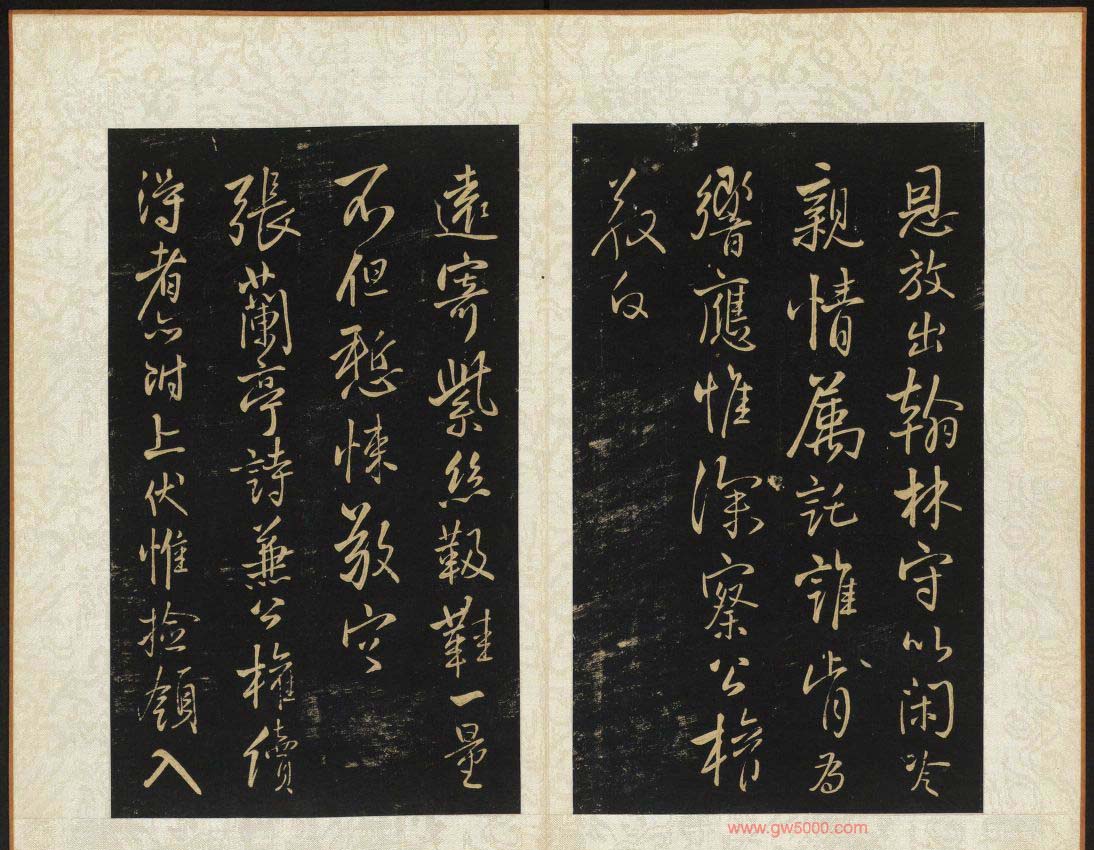 恩放出翰林守以閑冷
親情屬託誰肯為
響應惟深察公權
敬白
遠寄紫絲靸鞋一量
不但慙悚敬空
張蘭亭詩兼公權續
得者亦附上伏惟撿領入
www.gw5000.com